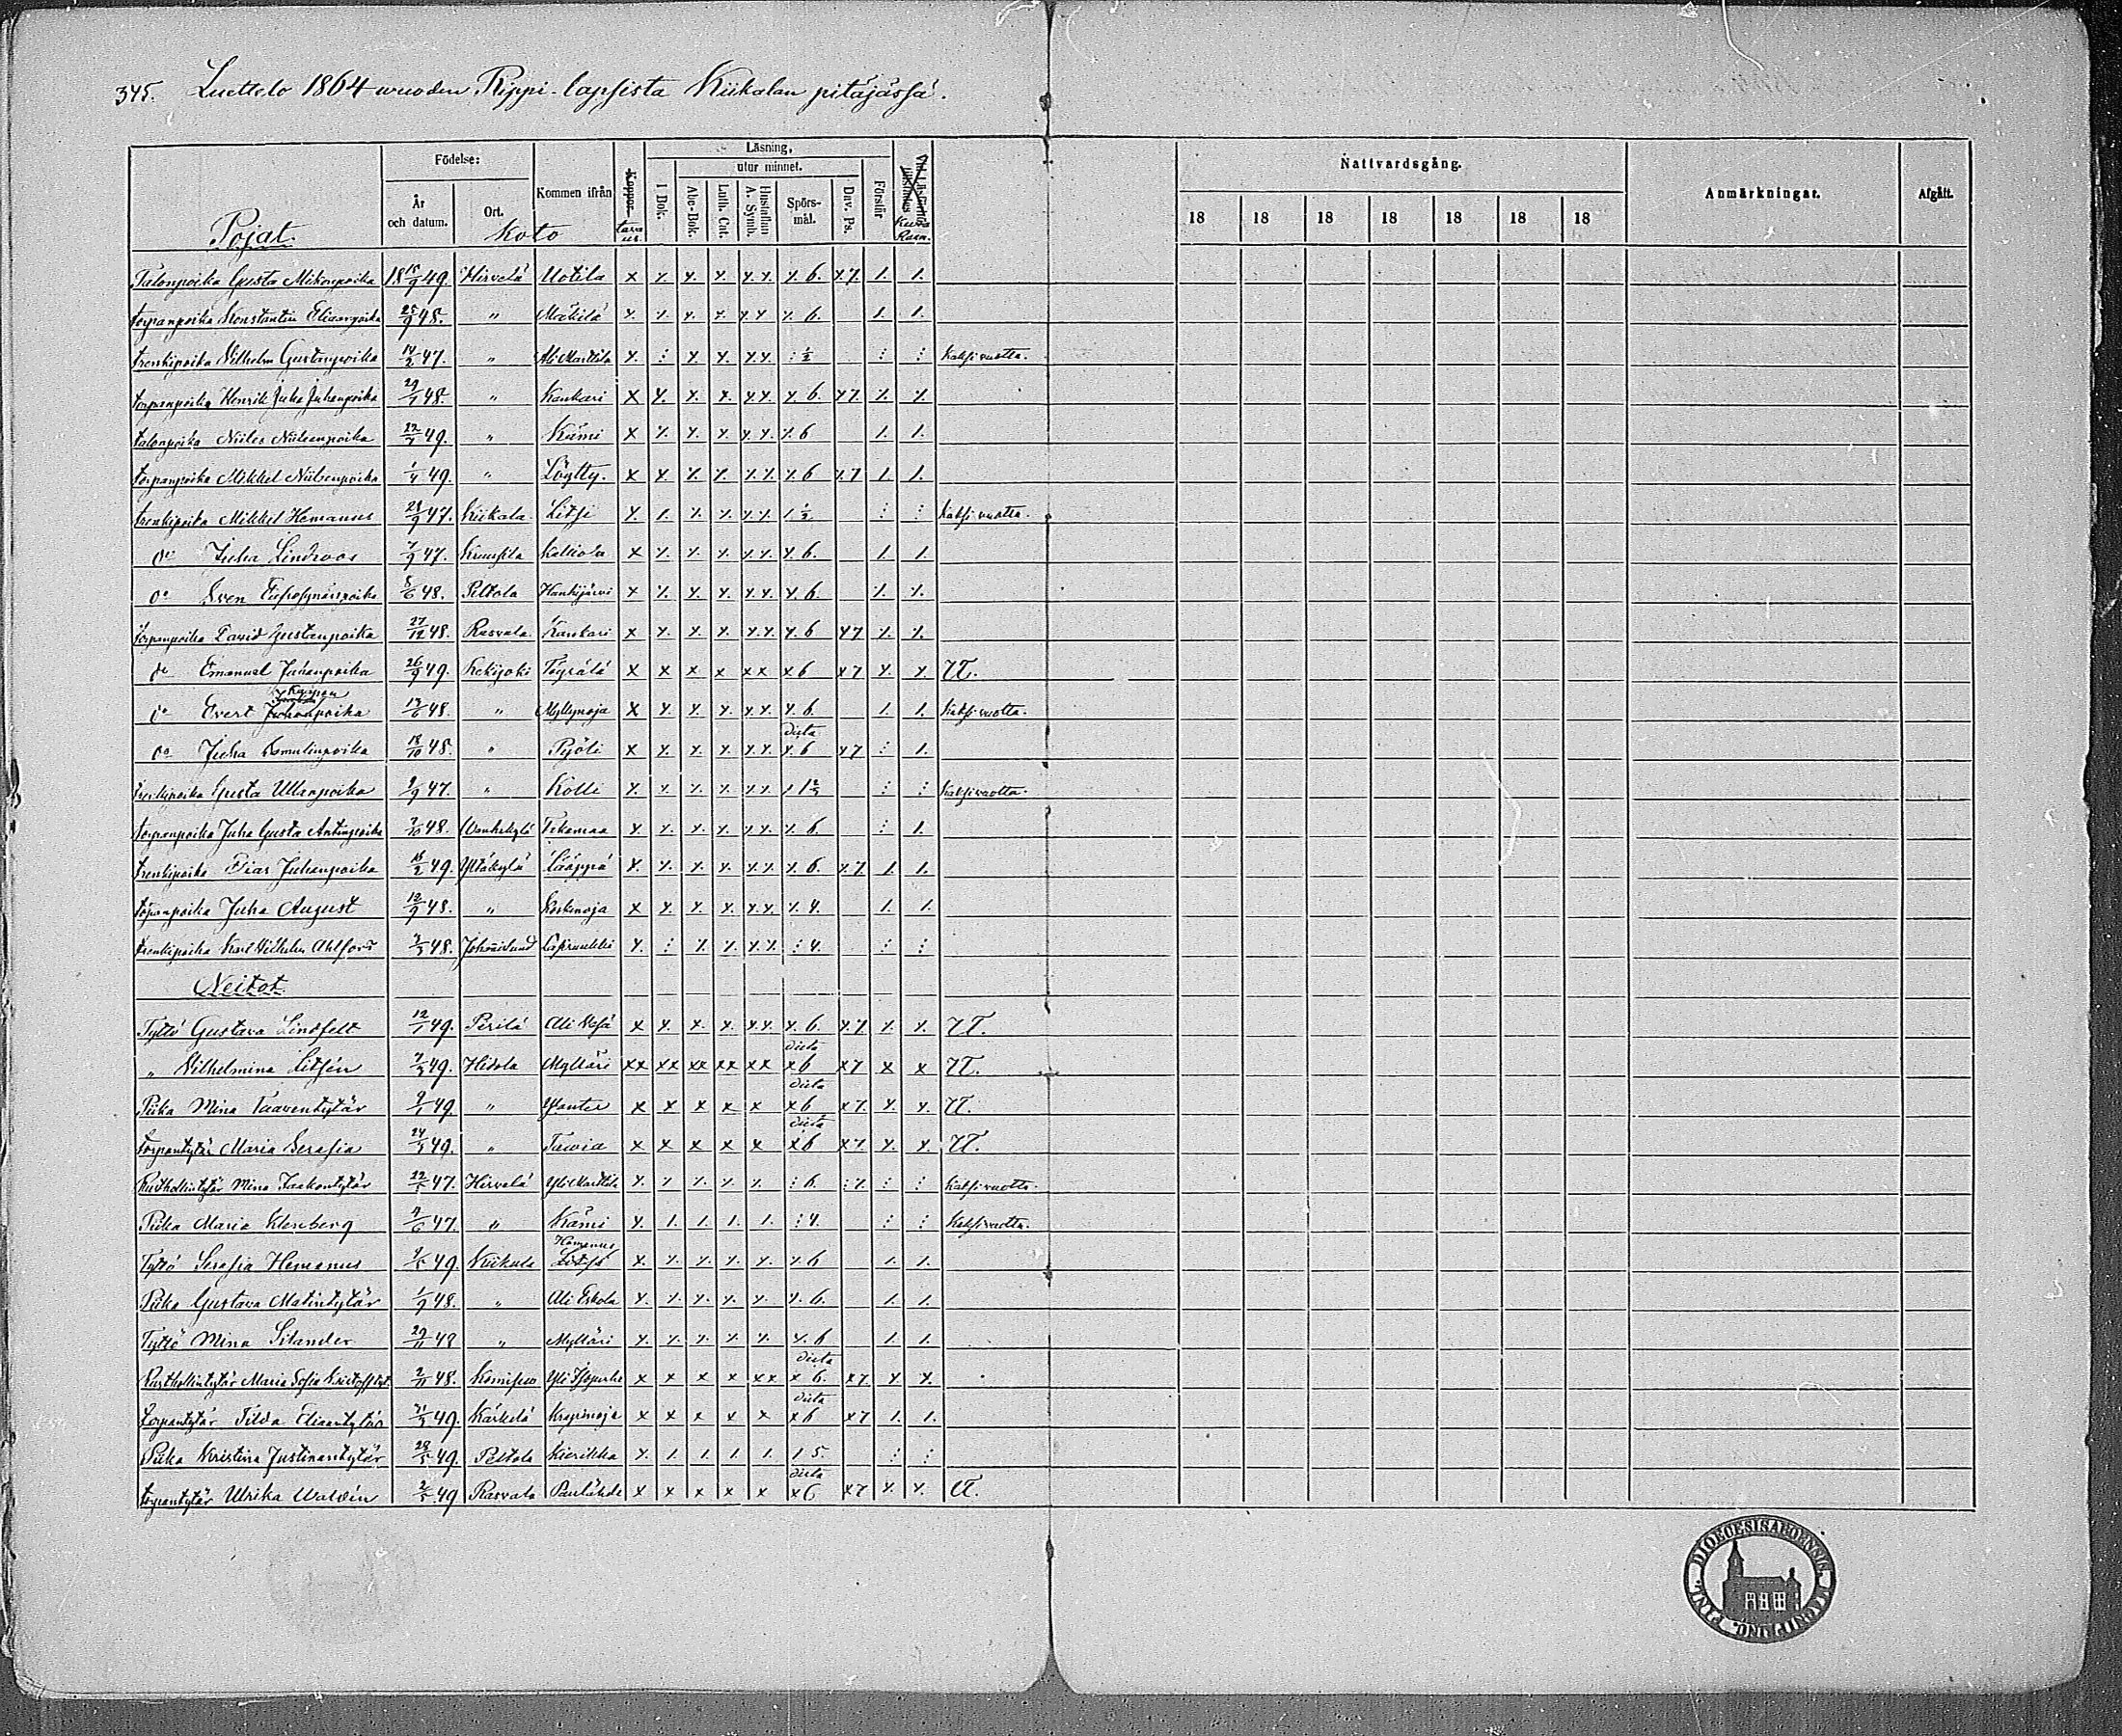 345. Luettelo 1864 wuoden Rippi-lapsista Kiikalan pitäjässä.
Födelse: Kommen ifrån Koppor. Läsning, Nattvardsgång. Anmärkningar. Afgått.
utur minnet.
År och datum. Ort. I Bok. Abc-Bok. Luth. Cat. Hustaflan A. Symb. Spörsmål. Dav. Ps. Förstår
18 18 18 18 18 18 18
Pojat. Koto
Talonpoika Gusta Mikonpoika 18 18/9 49. Hirvelä Uotila x x. x. x. x. x. x. 6. x 7. 1. 1.
torpanpoika Konstantin Elianpoika 25/9 48. " Mäkilä x. x. x. x. x x x. 6. 1. 1.
trenkipoika Wilhelm Gustanpoika 14/2 47. " Ali Marttila x. : x. x. x x. : 1/2 : : kaksi vuotta.
torpanpoika Henrik Juha Juhanpoika 29/1 48. " Kankari x x. x. x. x x. x. 6. x 7. x. x.
talonpoika Niiles Niilsenpoika 22/7 49. " Kämi x x. x. x. x. x. x. 6 1. 1.
torpanpoika Mikkel Niilsenpoika 1/4 49. " Löytty. x x. x. x. x. x. x. 6 x 7 1. 1.
trenkipoika Mikkel Hemanus 28/9 47. Kiikala Litsi x. 1. x. x. x. x. 1 1/2 : : kaksi vuotta.
do Juha Lindroos 7/9 47. Kruusila Kalliola x x. x. x. x x. x. 6. 1. 1.
do Sven 8/6 48. Peltola Hankijärvi x x. x. x. x x. x. 6. x. x.
torpanpoika David Gustanpoika 27/12 48. Rasvala Kankari x x. x. x. x. x. x. 6 x 7 x. x.
do Emanuel Juhanpoika 26/9 49. Rekijoki Töyrälä x x x x x x x 6 x 7 x. x. UT.
do Evert 17/6 48. " Myllynoja x x. x. x. x x. x. 6. 1. 1. kaksi vuotta.
do Juha Romulinpoika 18/10 48. " Pyöli x x. x. x. x x. dicta x. 6 x 7 : 1.
trenkipoika Gusta Ullanpoika 9/9 47. " Kolli x. x. x. x. x x. 1 1 2/3 : : kaksi vuotta.
torpanpoika Juha Gusta Antinpoika 7/10 48. Wanhakylä Tekamaa x. x. x. x. x x. x. 6. : 1.
trenkipoika Esias Juhanpoika 18/2 49. Yltäkylä Lääppä x. x. x. x. x x. x. 6. x 7. 1. 1.
torpanpoika Juha August 12/9 48. " Koskenoja x x. x. x. x. x. x. 4. 1. 1.
trenkipoika Karl Wilhelm Ahlfors 3/3 48. Johanislund x. : x. x. x. x. : 4. : :
Neitot.
Tyttö Gustava Lindfelt 12/1 49. Perilä Ali Wesä x x. x. x. x x. x. 6. x 7. x. x. UT.
" Wilhelmina Litsén 7/3 49. Hidola Mylläri xx xx xx xx xx dicta x 6 x 7 x x UT.
Piika Mina Taaventytär 9/1 49. " Yantee x x x x x dicta x 6 x 7. x. x. UT.
torpantytär Maria Serafia 24/4 49. " Tawia x x x x x dicta x 6 x 7. x. x. UT.
Rusthollintytär Mina Jaakontytär 22/5 47. Hirvelä Yli Marttila x. x x. x. x. : 6. : x. : : kaksi vuotta.
Piika Maria Klenberg 7/6 47. " Kämi x. 1. 1. 1. 1. : 4. : : kaksi vuotta.
Tyttö Serafia Hemanus 9/5 49 Kiikala Hemanus x. x. x. x. x. x. 6 1. 1.
Piika Gustava Matintytär 1/9 48. " Ali Eskola x. x. x. x. x. x. 6. 1. 1.
Tyttö Mina Silander 29/11 48 " Mylläri x. x. x. x. x. x. 6 1. 1.
Rusthollintytär Maria Sofia 2/11 48. Komisuo x x x x x x dicta x 6. x 7 x. x.
torpantytär Tilda Eliaantytär 21/3 49. Kärkelä Krapinoja x x x x x dicta x 6 x 7 1. 1.
Piika Kristina Justinantytär 28/5 49. Peltola Kierikka x. 1. 1. 1. 1. 1 5. : :
torpantytär Ulrika Waldén 2/5 49 Rasvala Paulähde x x x x x dicta x 6 x 7 x. x. UT.
DIOECESIS ABOENSIS